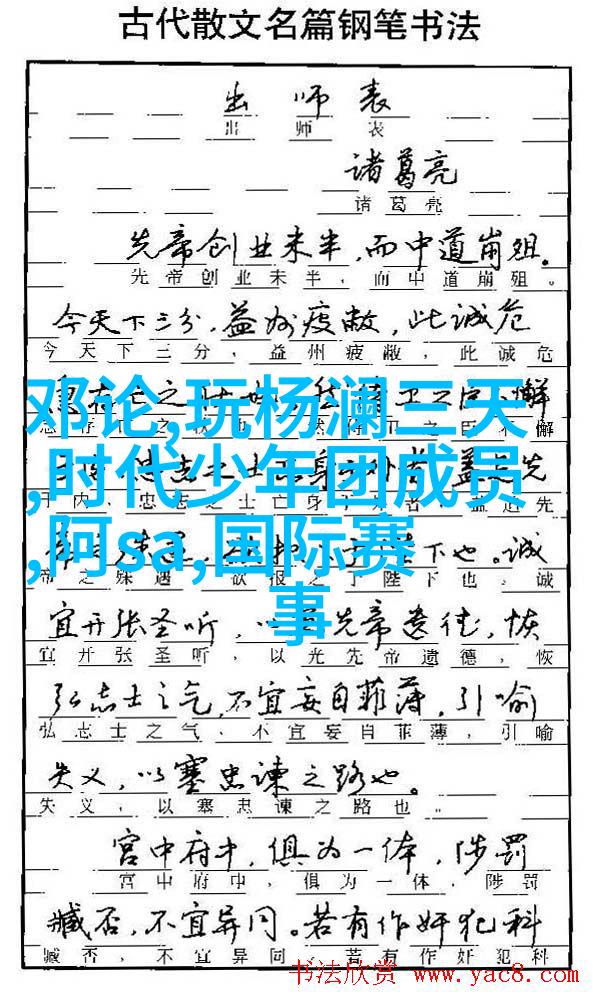 古代散文名篇钢笔书法
出师表
出师表
诸葛亮
诸葛亮
先帝创业未半,而中道崩殂。
先帝创业未半,而中道崩殂。
今天下三分,益州疲敝,此诚危
今天下三分,益州疲敝,此诚危
急存亡之 卫之臣 懈
邓论,玩杨澜三天
懈
忠志之士 身 盖 先
,时代少年团成员
于内 忠志之士亡身 者 盖追先
帝 殊遇, 下也。诚
,阿sa,国际赛
帝之殊遇,欲报之于陛下也,诚
宜开张圣听, 先帝遗德,恢
事
宜开张圣听,以光先帝遗德,恢
弘志士之气,不宜妄自菲薄,引喻
弘志士之气,不宜妄自菲薄,引喻
失义,以塞忠谏之路也。
失义,以塞忠谏之路也。
宫中府中,俱为一体,陟罚
宫中府中,俱为一体,陟罚
臧否,不宜异同。若有作奸犯科
臧否,不宜异同。若有作奸犯科
书法欣赏 www.yac8.com